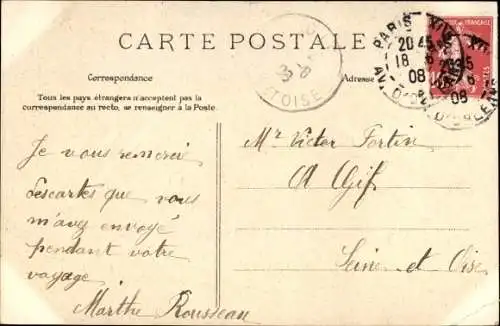 CARTE POSTALE
Correspondance
Adresse
Tous les pays étrangers n'acceptent pas la
correspondance au recto, se renseigner à la Poste.
PARIS
20 45
18 6
08
TOISE
Je vous remercie
des cartes que vous
m'avez envoyé
pendant votre
voyage
Marthe Rousseau
Mr Victor Fortin
A Gif
Seine et Oise